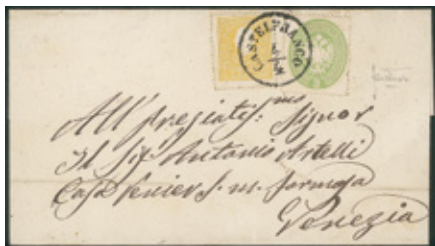 CASTELFRANCO
All' Pregiatis:mo Signor
Il Sig. Antonio Artelli
Casa Venier S. M. Formosa
Venezia